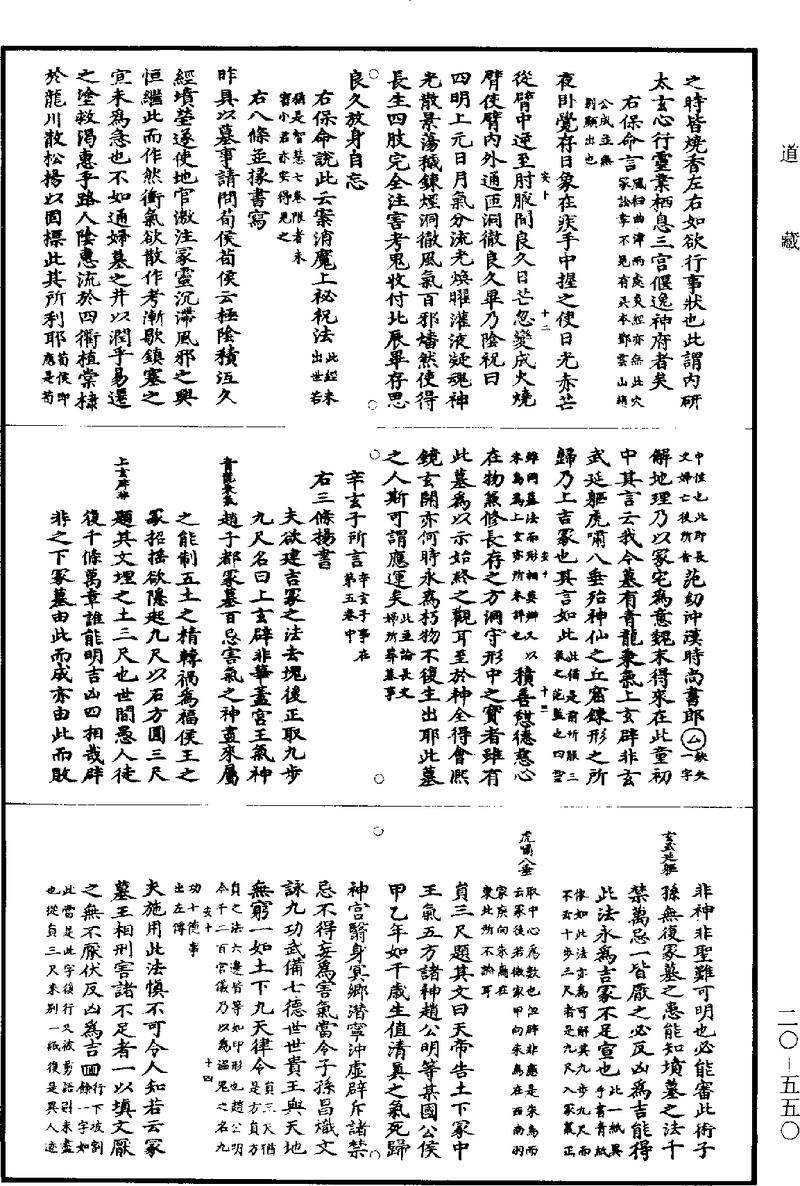 道藏
之時皆燒香左右如欲行事狀也此謂內研
太玄心行靈業栖息三宮偃逸神府者矣
右保命言
夜卧覺存日象在疾手中握之使日光赤芒
從臂中逆至肘腋間良久日芒忽變成火燒
臂使臂內外通匝洞徹良久畢乃陰祝曰
四明上元日月氣分流光煥曜灌液凝魂神
光散景蕩穢鍊煙洞徹風氣百邪燔然使得
長生四肢完全注害考鬼收付北辰畢存思
良久放身自忘
右保命說此云案消魔上祕祝法此經未出世若
猶是智慧七卷限者未審小君亦安得見之
右八條並掾書寫
昨具以墓事請問荀侯荀侯云極陰積沍久
經墳塋遂使地官激注冢靈沉滯風邪之興
恒繼此而作然衝氣欲散作考漸歇鎮塞之
宜未為急也不如通婦墓之井以潤乎易遷
之塗救渴惠乎路人陰惠流於四衢植棠棣
於龍川散松楊以固標此其所利耶荀侯即應是荀
中候也此即長史婦亡後所告范幼沖漢時尚書郎㕕缺失一字
解地理乃以冢宅為意魏末得來在此童初
中其言云我今墓有青龍秉氣上玄辟非玄
武延軀虎嘯八垂殆神仙之丘窟鍊形之所
歸乃上吉冢也其言如此
積善憇德慈心
在物兼修長存之方洞守形中之寶者雖有
此墓為以示始終之觀耳至於神全得會熙
鏡玄開亦何時永為朽物不復生出耶此墓
之人斯可謂應運矣此主論長史婦所葬墓事
辛玄子所言辛玄子事在第五卷中
右三條楊書
夫欲建吉冢之法去塊後正取九步
九尺名曰上玄辟非華蓋宮王氣神
青龍秉氣
趙子都冢墓百忌害氣之神盡來屬
之能制五土之精轉禍為福侯王之
冢招搖欲隱起九尺以石方圓三尺
上玄辟非
題其文埋之土三尺也世間愚人徒
復千條萬章誰能明吉凶四相哉辟
非之下冢墓由此而成亦由此而敗
非神非聖難可明也必能審此術子
玄武延軀
孫無復冢墓之患能知墳墓之法千
禁萬忌一皆厭之必反凶為吉能得
此法永為吉冢不足宣也此一紙異手書青紙
虎嘯八垂
貞三尺題其文曰天帝告土下冢中
王氣五方諸神趙公明等某國公侯
甲乙年如干歲生值清真之氣死歸
神宮翳身冥鄉潛寧沖虛辟斥諸禁
忌不得妄為害氣當令子孫昌熾文
詠九功武備七德世世貴王與天地
無窮一如土下九天律令
功七德事出左傳
夫施用此法慎不可令人知若云冢
墓王相刑害諸不足者一以填文厭
之無不厭伏反凶為吉
二〇—五五〇